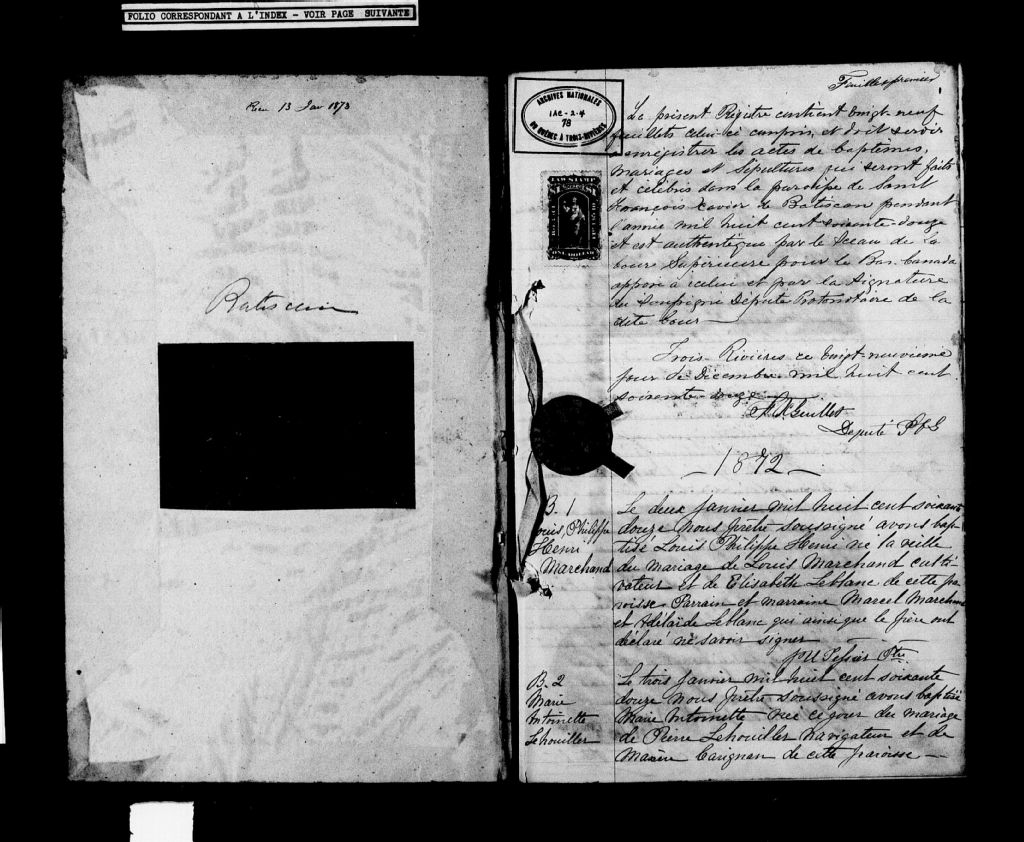 FOLIO CORRESPONDANT A L'INDEX - VOIR PAGE SUIVANTE
13 Jan 1873
Batiscan
Feuillet premier
ARCHIVES NATIONALES
1AC-2-4
78
DU QUÉBEC À TROIS-RIVIÈRES
LAW STAMP
ONE DOLLAR
Le présent Régistre contient vingt-neuf
feuillets celui-ci compris, et doit servir
a enrégistrer les actes de baptêmes,
Mariages et Sépultures qui seront faits
et célébrés dans la paroisse de Saint
François Xavier de Batiscan pendant
l'année mil huit cent soixante-douze
et est authentiqué par le Sceau de la
Cour Supérieure pour le Bas-Canada
apposé à icelui et par la Signature
du Soussigné Député Protonotaire de la
dite Cour
Trois-Rivières ce vingt-neuvième
jour de Décembre mil huit cent
soixante-onze
Guillet
Deputé P C S
1872
B. 1
Louis, Philippe
Henri
Marchand
Le deux janvier mil huit cent soixante
douze Nous prêtre soussigné avons bap
tisé Louis Philippe Henri né la veille
du mariage de Louis Marchand culti-
vateur et de Elisabeth Leblanc de cette pa
roisse. Parrain et marraine Marcel Marchand
et Adélaïde Leblanc qui ainsi que le père ont
déclaré ne savoir signer
Ptre
B. 2
Marie
Antoinette
Lehouiller
Le trois janvier mil huit cent soixante
douze Nous prêtre soussigné avons baptisé
Marie Antoinette née ce jour du mariage
de Pierre Lehouiller Navigateur et de
Carignan de cette paroisse